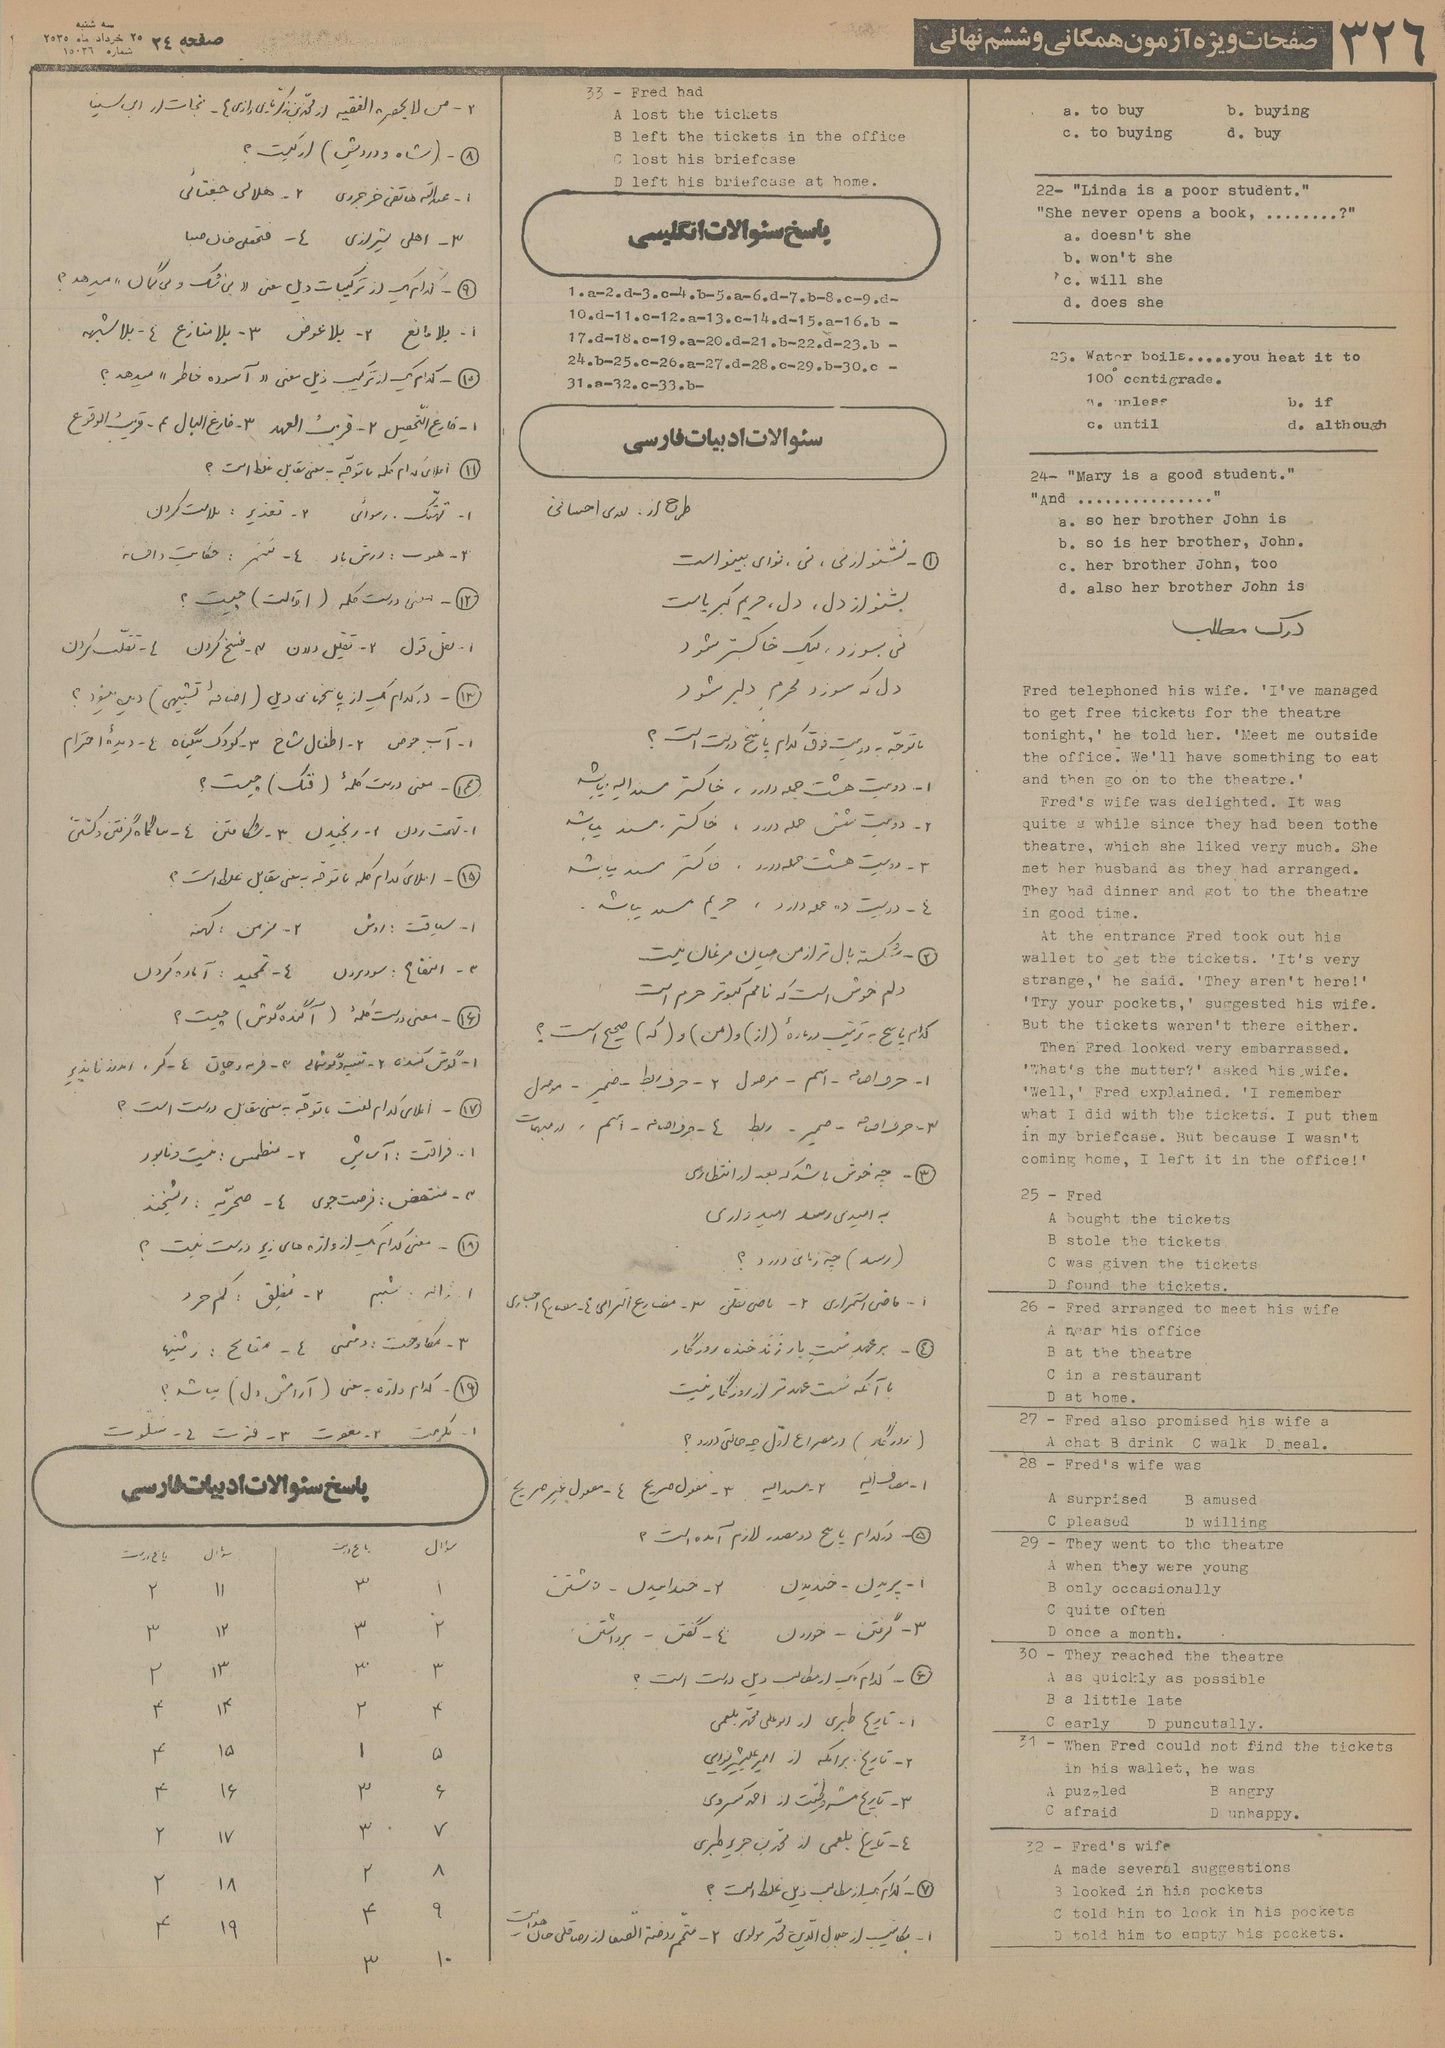 ۳۲۶
صفحات ویژه آزمون همگانی و ششم نهائی
صفحه ۲۴
سه شنبه
۲۵ خرداد ماه ۲۵۳۵
شماره ۱۵۰۳۶
a. to buy b. buying
c. to buying d. buy
22- "Linda is a poor student."
"She never opens a book, ........?"
a. doesn't she
b. won't she
c. will she
d. does she
23. Water boils.....you heat it to
100° centigrade.
a. unless b. if
c. until d. although
24- "Mary is a good student."
"And ..............."
a. so her brother John is
b. so is her brother, John.
c. her brother John, too
d. also her brother John is
درک مطلب
Fred telephoned his wife. 'I've managed
to get free tickets for the theatre
tonight,' he told her. 'Meet me outside
the office. We'll have something to eat
and then go on to the theatre.'
Fred's wife was delighted. It was
quite a while since they had been tothe
theatre, which she liked very much. She
met her husband as they had arranged.
They had dinner and got to the theatre
in good time.
At the entrance Fred took out his
wallet to get the tickets. 'It's very
strange,' he said. 'They aren't here!'
'Try your pockets,' suggested his wife.
But the tickets weren't there either.
Then Fred looked very embarrassed.
'What's the matter?' asked his wife.
'Well,' Fred explained. 'I remember
what I did with the tickets. I put them
in my briefcase. But because I wasn't
coming home, I left it in the office!'
25 - Fred
A bought the tickets
B stole the tickets
C was given the tickets
D found the tickets.
26 - Fred arranged to meet his wife
A near his office
B at the theatre
C in a restaurant
D at home.
27 - Fred also promised his wife a
A chat B drink C walk D meal.
28 - Fred's wife was
A surprised B amused
C pleased D willing
29 - They went to the theatre
A when they were young
B only occasionally
C quite often
D once a month.
30 - They reached the theatre
A as quickly as possible
B a little late
C early D puncutally.
31 - When Fred could not find the tickets
in his wallet, he was
A puzzled B angry
C afraid D unhappy.
32 - Fred's wife
A made several suggestions
B looked in his pockets
C told him to look in his pockets
D told him to empty his pockets.
33 - Fred had
A lost the tickets
B left the tickets in the office
C lost his briefcase
D left his briefcase at home.
پاسخ سئوالات انگلیسی
1.a-2.d-3.c-4.b-5.a-6.d-7.b-8.c-9.d-
10.d-11.c-12.a-13.c-14.d-15.a-16.b -
17.d-18.c-19.a-20.d-21.b-22.d-23.b -
24.b-25.c-26.a-27.d-28.c-29.b-30.c -
31.a-32.c-33.b-
سئوالات ادبیات فارسی
طرح از: احسانی
۱- نشنو از نی، نی، نوای بینواست
بشنو از دل، دل، حریم کبریاست
نی بسوزد، لیک خاکستر شود
دل که سوزد محرم دلبر شود
با توجه به دو بیت فوق کدام پاسخ درست است؟
۱- دو بیت هشت جمله دارد، خاکستر مسندالیه میباشد
۲- دو بیت شش جمله دارد، خاکستر مسند میباشد
۳- دو بیت هشت جمله دارد، خاکستر مسند میباشد
٤- دو بیت ده جمله دارد، حریم مسند میباشد.
۲- شکسته بال تر از من میان مرغان نیست
دلم خوش است که نامم کبوتر حرم است
کدام پاسخ به ترتیب درباره (از) و (من) و (که) صحیح است؟
۱- حرف اضافه - اسم - موصول ۲- حرف ربط - ضمیر - موصول
۳- حرف اضافه - ضمیر - ربط ٤- حرف اضافه - اسم، از مبهمات
۳- چه خوش باشد که بعد از انتظاری
به امیدی رسد امیدواری
(رسد) چه زمانی دارد؟
۱- ماضی استمراری ۲- ماضی نقلی ۳- مضارع التزامی ٤- مضارع اخباری
٤- بر عهد سست یار زند خنده روزگار
با آنکه سست عهد تر از روزگار نیست
(روزگار) در مصراع اول چه حالتی دارد؟
۱- مضاف الیه ۲- مسندالیه ۳- مفعول صریح ٤- مفعول غیر صریح
۵- در کدام پاسخ دو مصدر لازم آمده است؟
۱- پریدن - خندیدن ۲- خندانیدن - داشتن
۳- گرفتن - خوردن ٤- گفتن - برداشتن
۶- کدام یک از مطالب ذیل درست است؟
۱- تاریخ طبری از ابوعلی محمد بلعمی
۲- تاریخ برامکه از امیر علیشیر نوایی
۳- تاریخ مشروطیت از احمد کسروی
٤- تاریخ بلعمی از محمد بن جریر طبری
۷- کدام یک از مطالب ذیل غلط است؟
۱- مکاتیب از جلال الدین محمد مولوی ۲- متمم روضة الصفا از رضا قلی خان هدایت
۳- من لا یحضره الفقیه از محمد بن زکریای رازی ٤- نجات از ابن سینا
۸- (شاه و درویش) از کیست؟
۱- عبدالله هاتفی خرجردی ۲- هلالی جغتائی
۳- اهلی شیرازی ٤- فتحعلی خان صبا
۹- کدام یک از ترکیبات ذیل معنی «بی شک و بی گمان» میدهد؟
۱- بلا مانع ۲- بلا عوض ۳- بلا منازع ٤- بلا شبهه
۱۰- کدام یک از ترکیب ذیل معنی «آسوده خاطر» میدهد؟
۱- فارغ التحصیل ۲- قریب العهد ۳- فارغ البال ۴- قریب الوقوع
۱۱- املای کدام کلمه با توجه به معنی مقابل غلط است؟
۱- تهتک: رسوائی ۲- تعذیر: ملامت کردن
۳- هبوب: وزش باد ٤- سمر: حکایت و افسانه
۱۲- معنی درست کلمه (اقالت) چیست؟
۱- نقل قول ۲- تقلیل دادن ۳- فسخ کردن ٤- تقلب کردن
۱۳- در کدام یک از پاسخهای ذیل (اضافه تشبیهی) دیده میشود؟
۱- آب حوض ۲- اطفال شاخ ۳- کودک بیگناه ٤- دیده احترام
۱٤- معنی درست کلمه (فتک) چیست؟
۱- تهمت زدن ۲- رنجیدن ۳- شکافتن ٤- ناگاه گرفتن و کشتن
۱۵- املای کدام کلمه با توجه به معنی مقابل غلط است؟
۱- سیاقت: روش ۲- مزمن: کهنه
۳- انتفاع: سود بردن ٤- تمحید: آماده کردن
۱۶- معنی درست کلمه (آگنده گوش) چیست؟
۱- گوش کننده ۲- تنبیه و گوشمالی ۳- فربه و چاق ٤- کر، اندرز ناپذیر
۱۷- املای کدام لغت با توجه به معنی مقابل درست است؟
۱- فراقت: آسایش ۲- منطمس: نیست و نابود
۳- منتهض: فرصت جوی ٤- صخریه: ریشخند
۱۸- معنی کدام یک از واژه های زیر درست نیست؟
۱- ژاله: شبنم ۲- مفلق: کم خرد
۳- مکاوحت: دشمنی ٤- مقابح: زشتیها
۱۹- کدام واژه به معنی (آرامش دل) میباشد؟
۱- نکهت ۲- ۳- فترت ٤- سلوت
پاسخ سئوالات ادبیات فارسی
سؤال پاسخ درست سؤال پاسخ درست
۱ ۳ ۱۱ ۲
۲ ۳ ۱۲ ۳
۳ ۳ ۱۳ ۲
۴ ۲ ۱۴ ۴
۵ ۱ ۱۵ ۴
۶ ۳ ۱۶ ۴
۷ ۳ ۱۷ ۲
۸ ۲ ۱۸ ۲
۹ ۴ ۱۹ ۴
۱۰ ۳